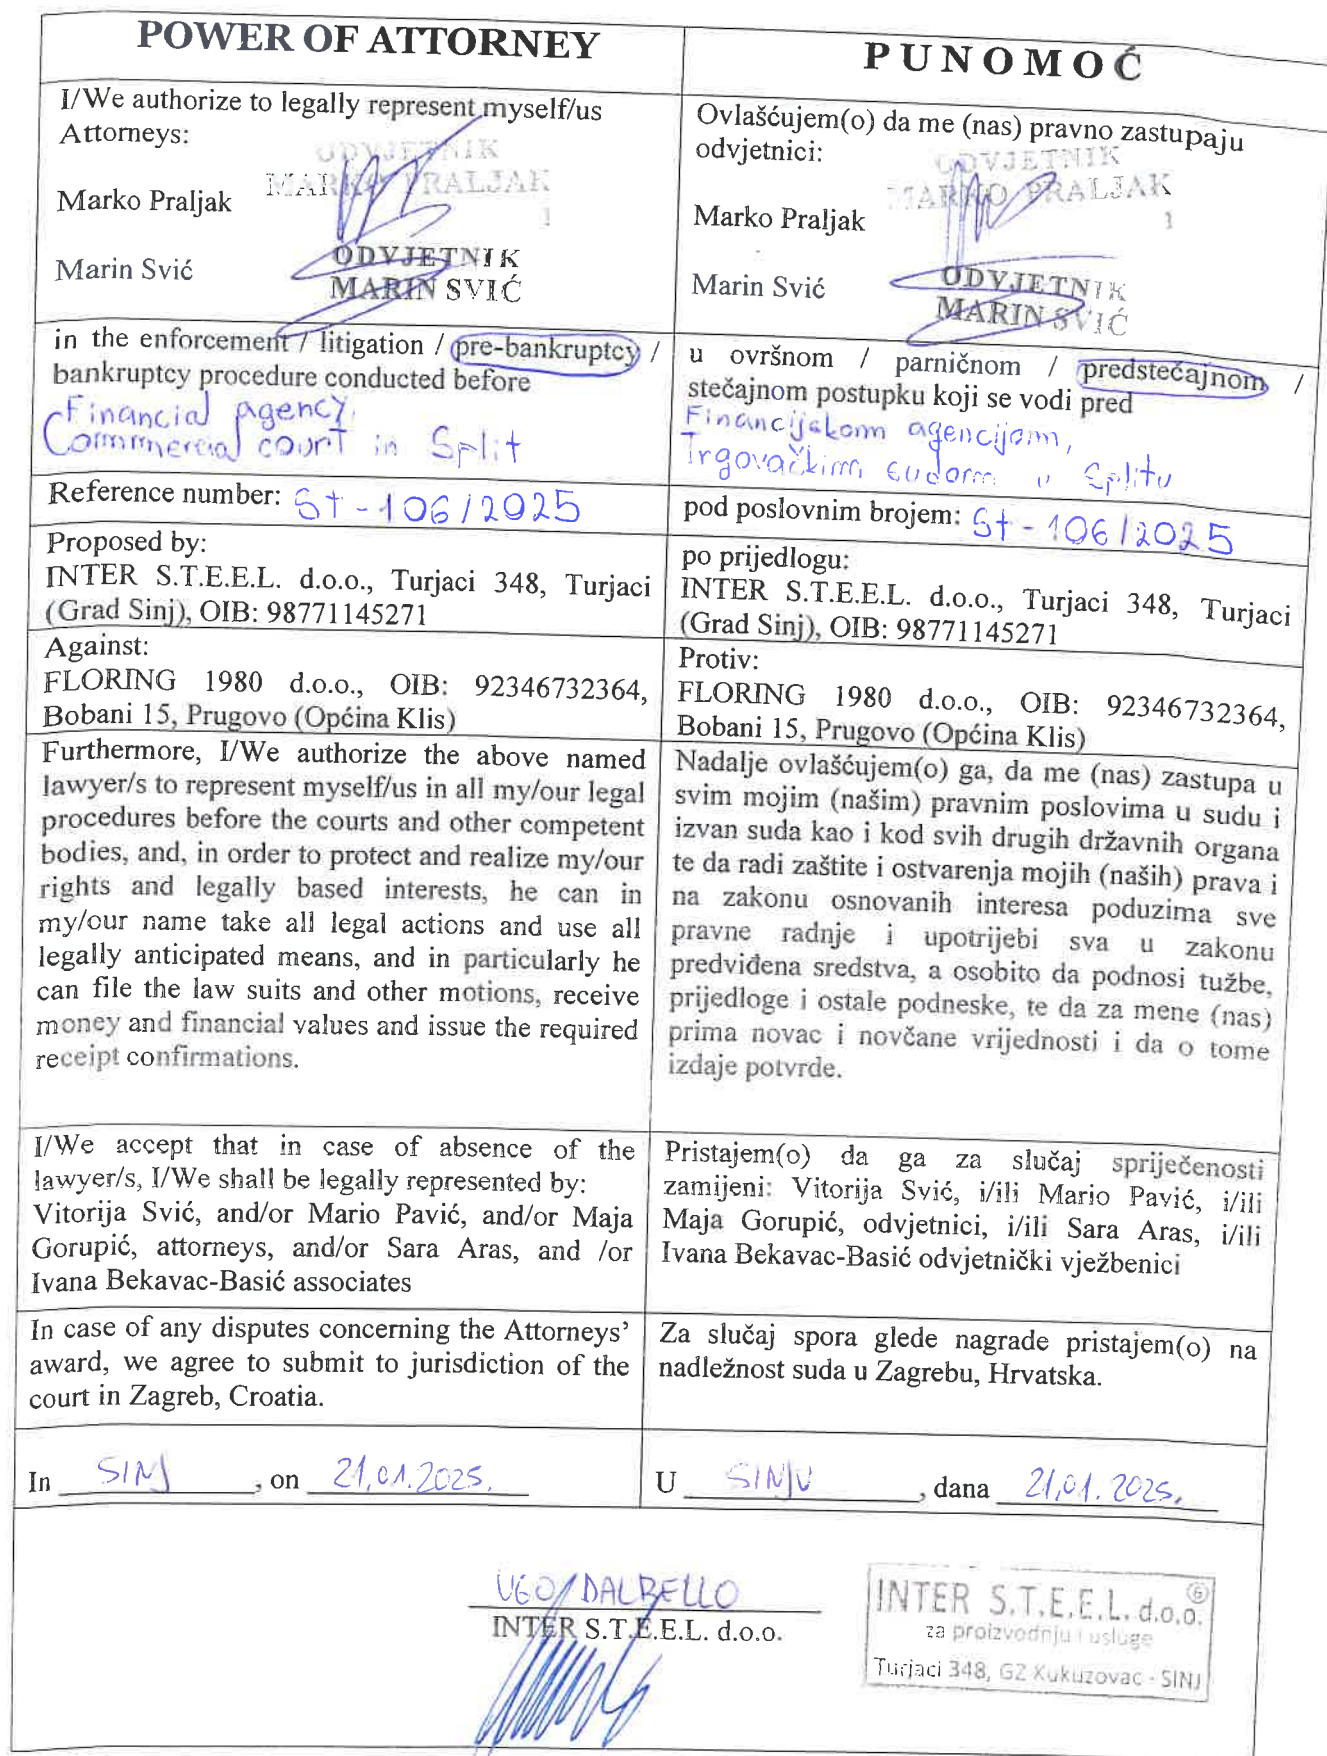 POWER OF ATTORNEY
I/We authorize to legally represent myself/us
Attorneys:
ODVJETNIK
MARKO PRALJAK
1
Marko Praljak
Marin Svić
ODVJETNIK
MARIN SVIĆ
in the enforcement / litigation / pre-bankruptcy /
bankruptcy procedure conducted before
Financial agency,
Commercial court in Split
Reference number: St - 106/2025
Proposed by:
INTER S.T.E.E.L. d.o.o., Turjaci 348, Turjaci
(Grad Sinj), OIB: 98771145271
Against:
FLORING 1980 d.o.o., OIB: 92346732364,
Bobani 15, Prugovo (Općina Klis)
Furthermore, I/We authorize the above named
lawyer/s to represent myself/us in all my/our legal
procedures before the courts and other competent
bodies, and, in order to protect and realize my/our
rights and legally based interests, he can in
my/our name take all legal actions and use all
legally anticipated means, and in particularly he
can file the law suits and other motions, receive
money and financial values and issue the required
receipt confirmations.
I/We accept that in case of absence of the
lawyer/s, I/We shall be legally represented by:
Vitorija Svić, and/or Mario Pavić, and/or Maja
Gorupić, attorneys, and/or Sara Aras, and /or
Ivana Bekavac-Basić associates
In case of any disputes concerning the Attorneys'
award, we agree to submit to jurisdiction of the
court in Zagreb, Croatia.
In SINJ, on 21.01.2025.
PUNOMOĆ
Ovlašćujem(o) da me (nas) pravno zastupaju
odvjetnici:
ODVJETNIK
MARKO PRALJAK
1
Marko Praljak
Marin Svić
ODVJETNIK
MARIN SVIĆ
u ovršnom / parničnom / predstečajnom /
stečajnom postupku koji se vodi pred
Financijskom agencijom,
Trgovačkim sudom u Splitu
pod poslovnim brojem: St - 106/2025
po prijedlogu:
INTER S.T.E.E.L. d.o.o., Turjaci 348, Turjaci
(Grad Sinj), OIB: 98771145271
Protiv:
FLORING 1980 d.o.o., OIB: 92346732364,
Bobani 15, Prugovo (Općina Klis)
Nadalje ovlašćujem(o) ga, da me (nas) zastupa u
svim mojim (našim) pravnim poslovima u sudu i
izvan suda kao i kod svih drugih državnih organa
te da radi zaštite i ostvarenja mojih (naših) prava i
na zakonu osnovanih interesa poduzima sve
pravne radnje i upotrijebi sva u zakonu
predviđena sredstva, a osobito da podnosi tužbe,
prijedloge i ostale podneske, te da za mene (nas)
prima novac i novčane vrijednosti i da o tome
izdaje potvrde.
Pristajem(o) da ga za slučaj spriječenosti
zamijeni: Vitorija Svić, i/ili Mario Pavić, i/ili
Maja Gorupić, odvjetnici, i/ili Sara Aras, i/ili
Ivana Bekavac-Basić odvjetnički vježbenici
Za slučaj spora glede nagrade pristajem(o) na
nadležnost suda u Zagrebu, Hrvatska.
U SINJU, dana 21.01.2025.
UGO DALBELLO
INTER S.T.E.E.L. d.o.o.
INTER S.T.E.E.L. d.o.o. 6
za proizvodnju i usluge
Turjaci 348, GZ Kukuzovac - SINJ